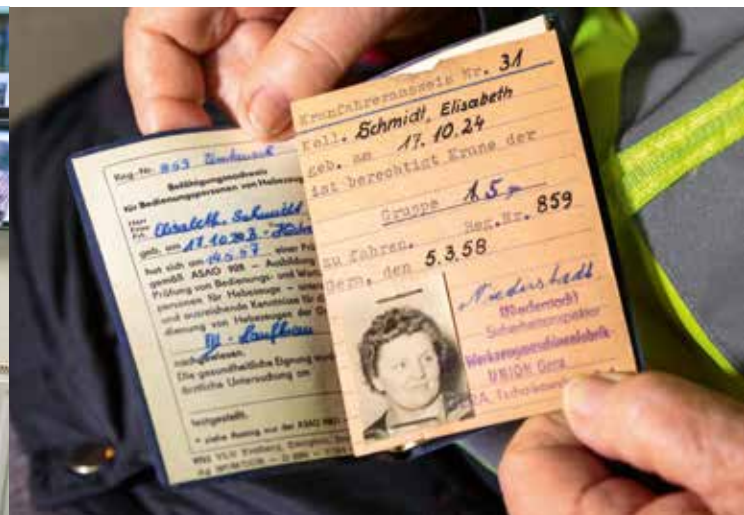 Reg.-Nr. 859 Umtausch
Befähigungsnachweis
für Bedienungspersonen von Hebezeugen
Herr
Frau
Frl. Elisabeth Schmidt
geb. am 17.10.
hat sich am einer Prü
gemäß ASAO 908 – Ausbildung
Prüfung von Bedienungs- und Wart
personen für Hebezeuge – unter
und ausreichende Kenntnisse für di
dienung von Hebezeugen der Gr
III - Laufkran
nachgewiesen.
Die gesundheitliche Eignung wurd
ärztliche Untersuchung am
festgestellt.
* siehe Auszug aus der ASAO 908
Kranfahrerausweis Nr. 31
Koll. Schmidt, Elisabeth
geb. am 17.10.24
ist berechtigt Krane der
Gruppe
zu fahren. Reg.Nr. 859
Gera, den 5.3.58
Niederstadt
Sicherheitsinspektor
Werkzeugmaschinenfabrik
UNION Gera